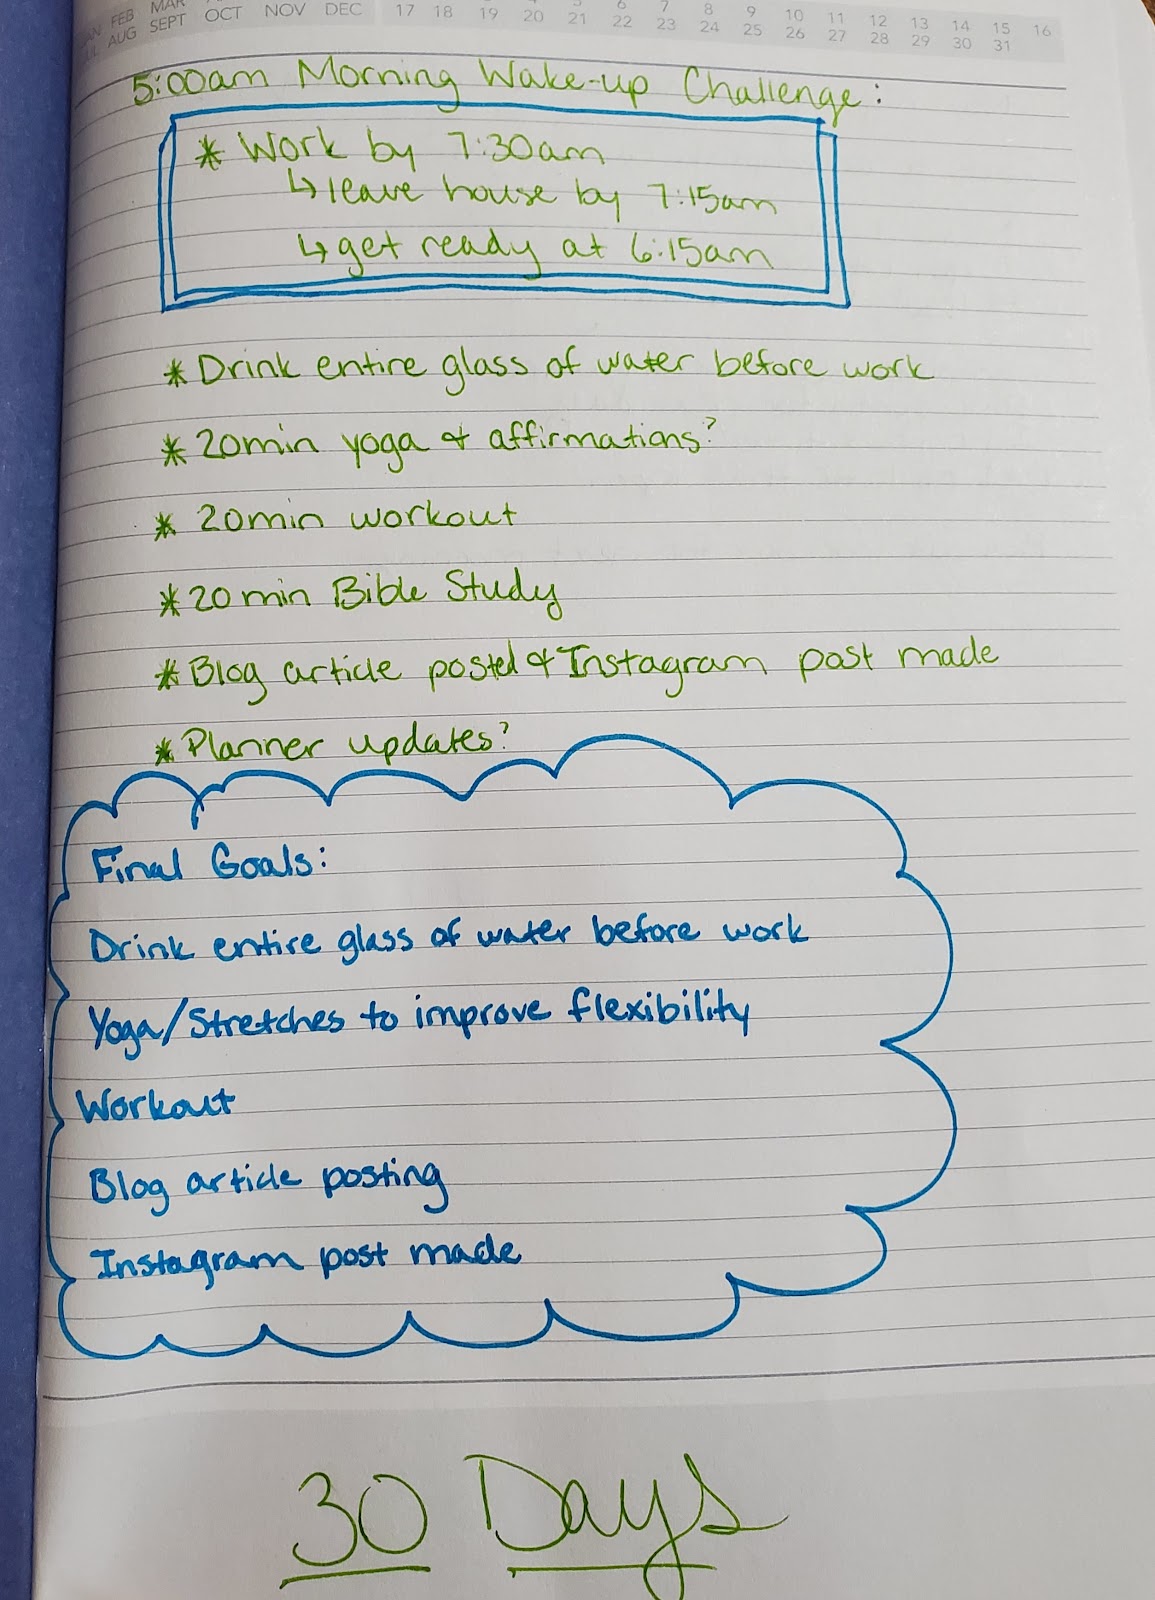 FEB MAR
AUG SEPT OCT NOV DEC
7 8 9 10 11 12 13 14 15 16
17 18 19 20 21 22 23 24 25 26 27 28 29 30 31
5:00am Morning Wake-up Challenge:
* Work by 7:30am
↳ leave house by 7:15am
↳ get ready at 6:15am
* Drink entire glass of water before work
* 20min yoga & affirmations?
* 20min workout
* 20min Bible Study
* Blog article posted & Instagram post made
* Planner updates?
Final Goals:
Drink entire glass of water before work
Yoga/Stretches to improve flexibility
Workout
Blog article posting
Instagram post made
30 Days